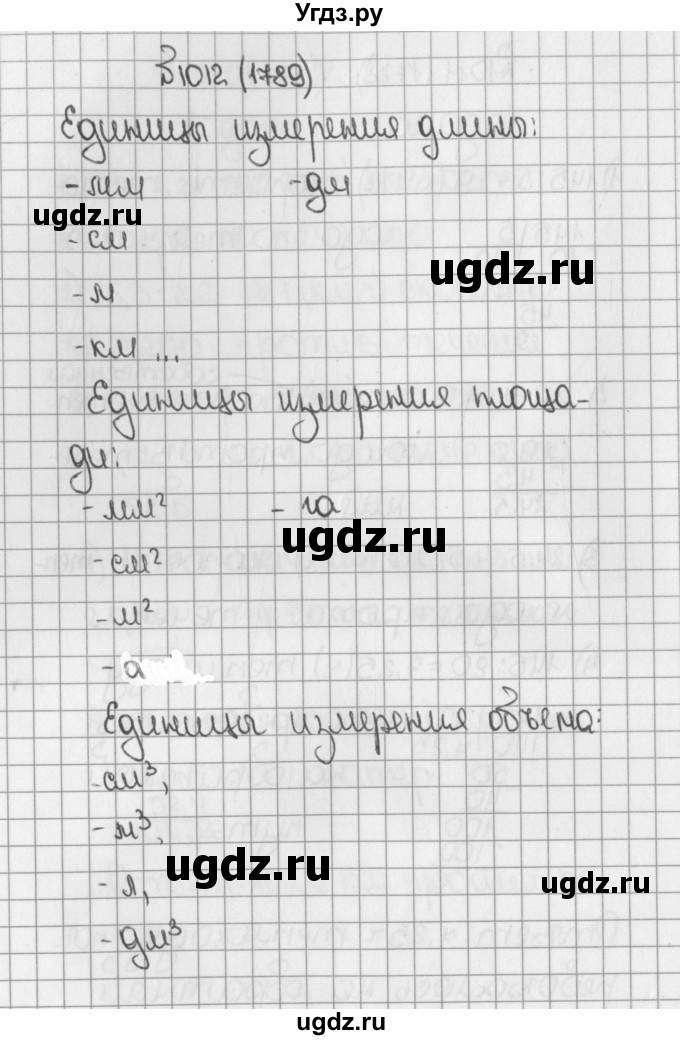 Угдз.ру
В1012 (1789)
Единицы измерения длины:
- мм - дм
ugdz.ru
- см
ugdz.ru
- м
- км ...
Единицы измерения площа-
ди:
- мм² - га
ugdz.ru
- см²
- м²
ugdz.ru
- а
Единицы измерения объема:
- см³,
- м³,
ugdz.ru
- л,
ugdz.ru
- дм³
ugdz.ru